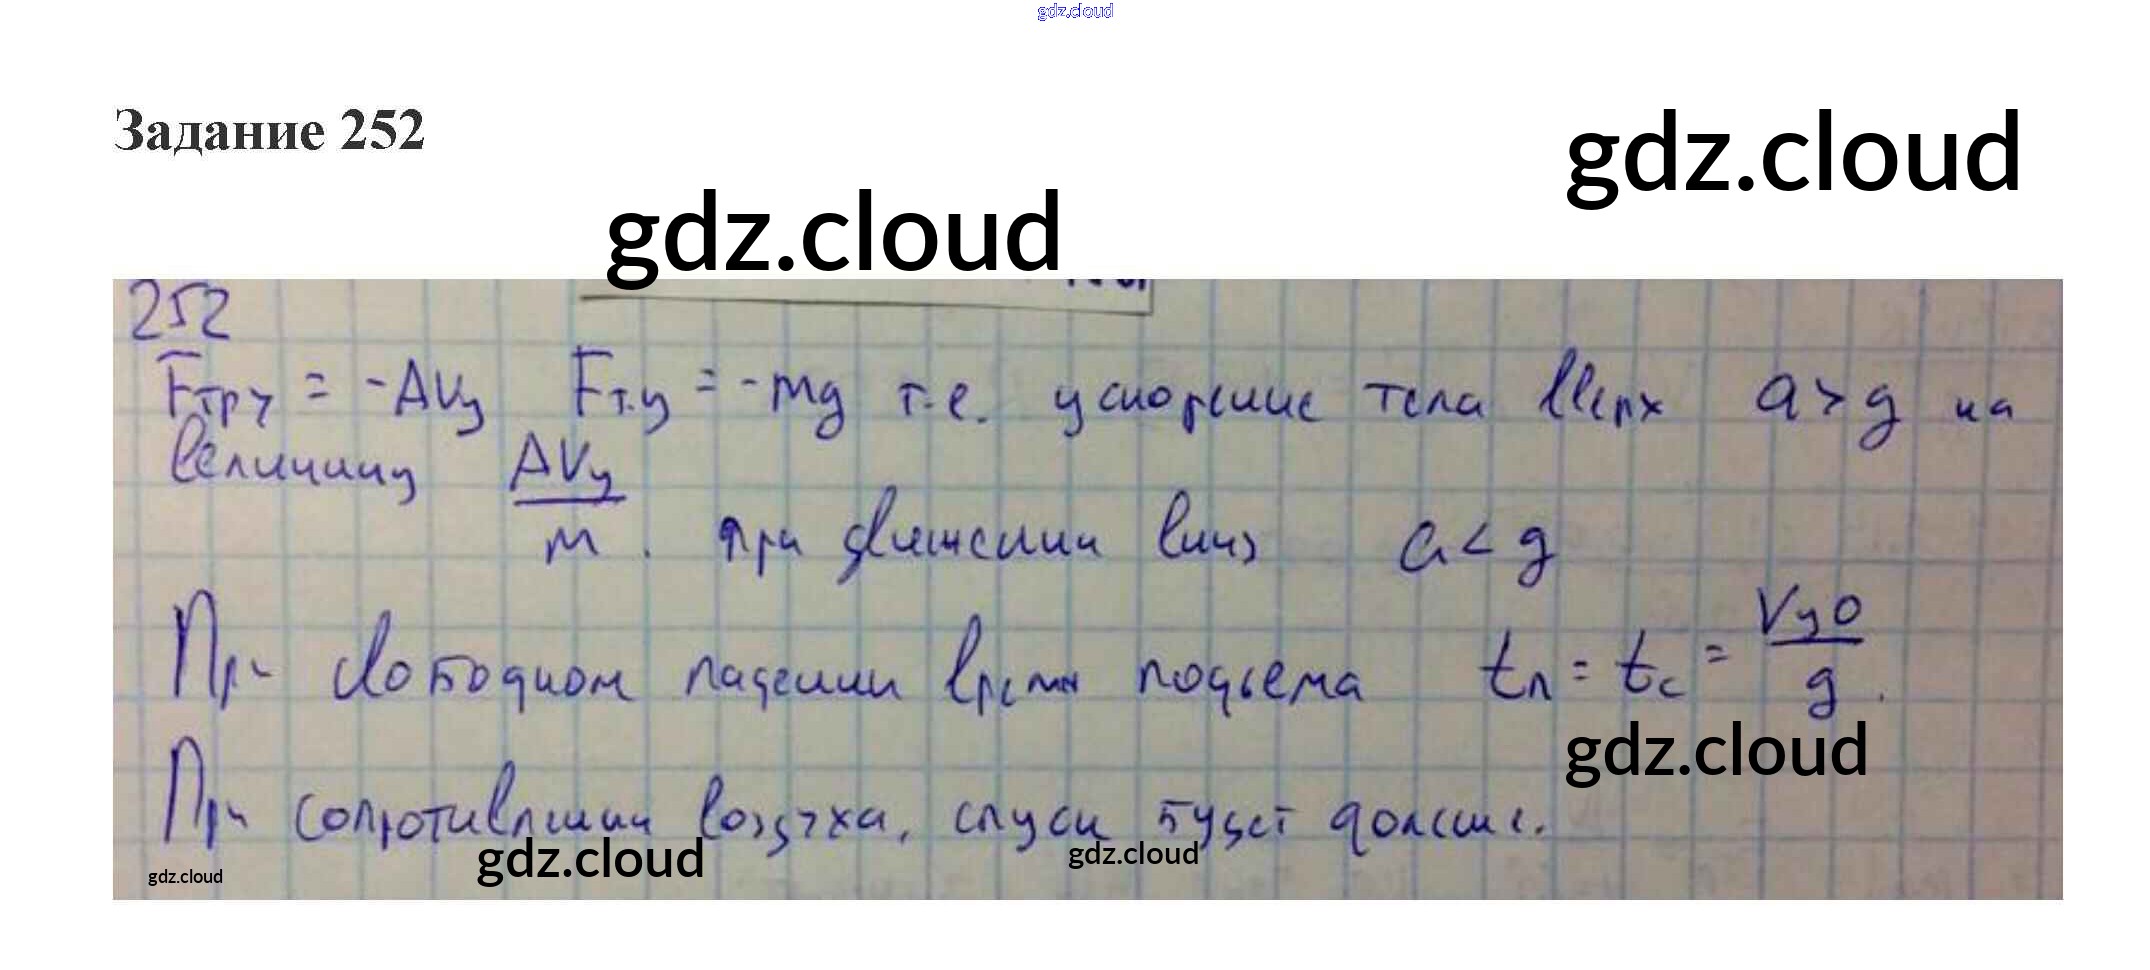 gdz.cloud
Задание 252
gdz.cloud
gdz.cloud
252
Fтру = -ΔVy Fт.y = -mg т.е. ускорение тела вверх a > g на
величину ΔVy/m. при движении вниз a < g
При свободном падении время подъема tп = tс = Vy0/g.
При сопротивлении воздуха, спуск будет дольше.
gdz.cloud
gdz.cloud
gdz.cloud
gdz.cloud